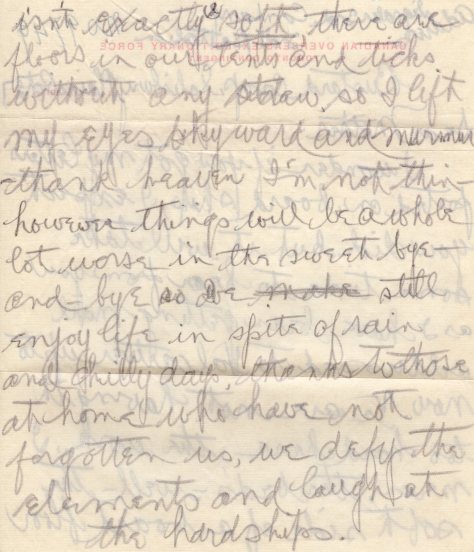 isn't exactly "soft", there are
floors in our tents and ticks
without any straw, so I lift
my eyes skyward and murmur
-thank heaven I'm not thin-
however things will be a whole
lot worse in the sweet bye-
and-bye so we make still
enjoy life in spite of rain
and chilly days, thanks to those
at home who have not
forgotten us, we defy the
elements and laugh at
the hardships.